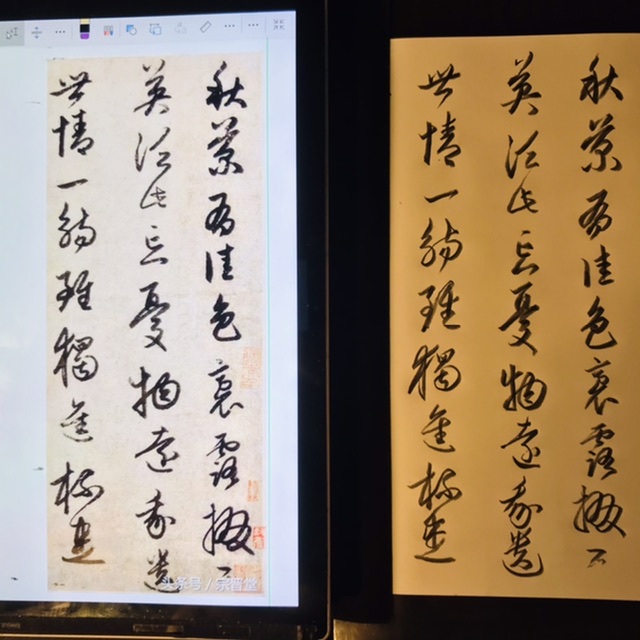 秋菊有佳色裛露掇其
英泛此忘憂物遠我遺
世情一觴雖獨進杯盡
头条号 /
秋菊有佳色裛露掇其
英泛此忘憂物遠我遺
世情一觴雖獨進杯盡